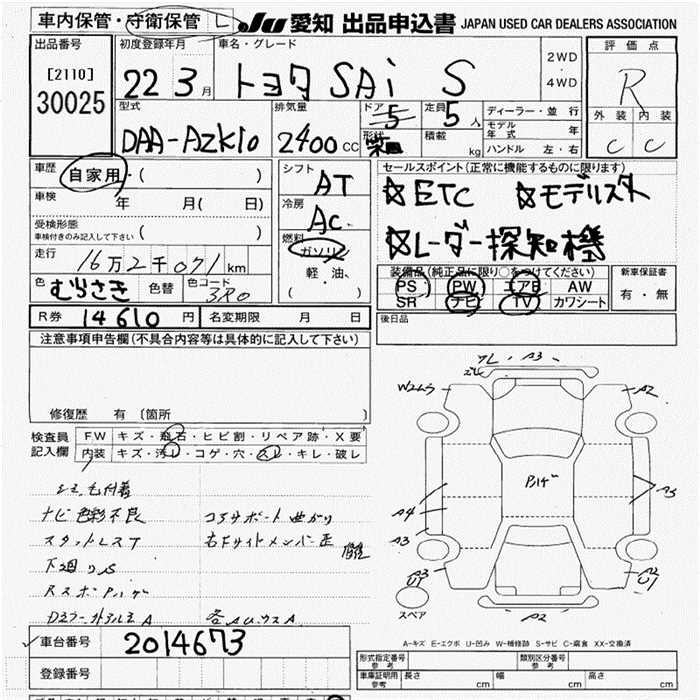 車内保管・守衛保管 L JU 愛知 出品申込書 JAPAN USED CAR DEALERS ASSOCIATION
出品番号 初度登録年月 車名・グレード 評価点
[2110] 22 3月 トヨタ SAi S 2WD・4WD R
30025
型式 排気量 ドア 5 定員 5人 ディーラー・並行 外装 内装
DAA-AZK10 2400cc 形状 積載 kg モデル年式 年 C C
ハンドル 左・右
車歴 自家用・( ) シフト AT セールスポイント(正常に機能するものに限ります)
車検 年 月( 日) 冷房 AC ☆ETC ☆モデリスタ
受検形態 車検付きのみ記入して下さい ( ) 燃料 ガソリン ☆レーダー探知機
走行 16万2千071km 軽油、 装備品(純正品に限り○をつけてください) 新車保証書
色 むらさき 色替 色コード 3R0 ( ) PS PW エアB AW 有・無
SR ナビ TV カワシート
R券 14610円 名変期限 月 日 後日品
注意事項申告欄(不具合内容等は具体的に記入して下さい)
修復歴 有 〔箇所 〕
検査員記入欄 FW キズ・飛石・ヒビ割・リペア跡・X要
内装 キズ・汚レ・コゲ・穴・スレ・キレ・破レ
ナビ色彩不良 コアサポート曲がり
右Fサイドメンバー歪 修理
下回りS
A3
W2
A2
A4
A3
A3
A2
U1
A2
U1
A2
スペア
A-キズ E-エクボ U-凹み W-補修跡 S-サビ C-腐食 XX-交換済
車台番号 2014673
登録番号
形式指定番号 参考 類別区分番号 参考
車庫証明用 参考 長さ cm 幅 cm 高さ cm